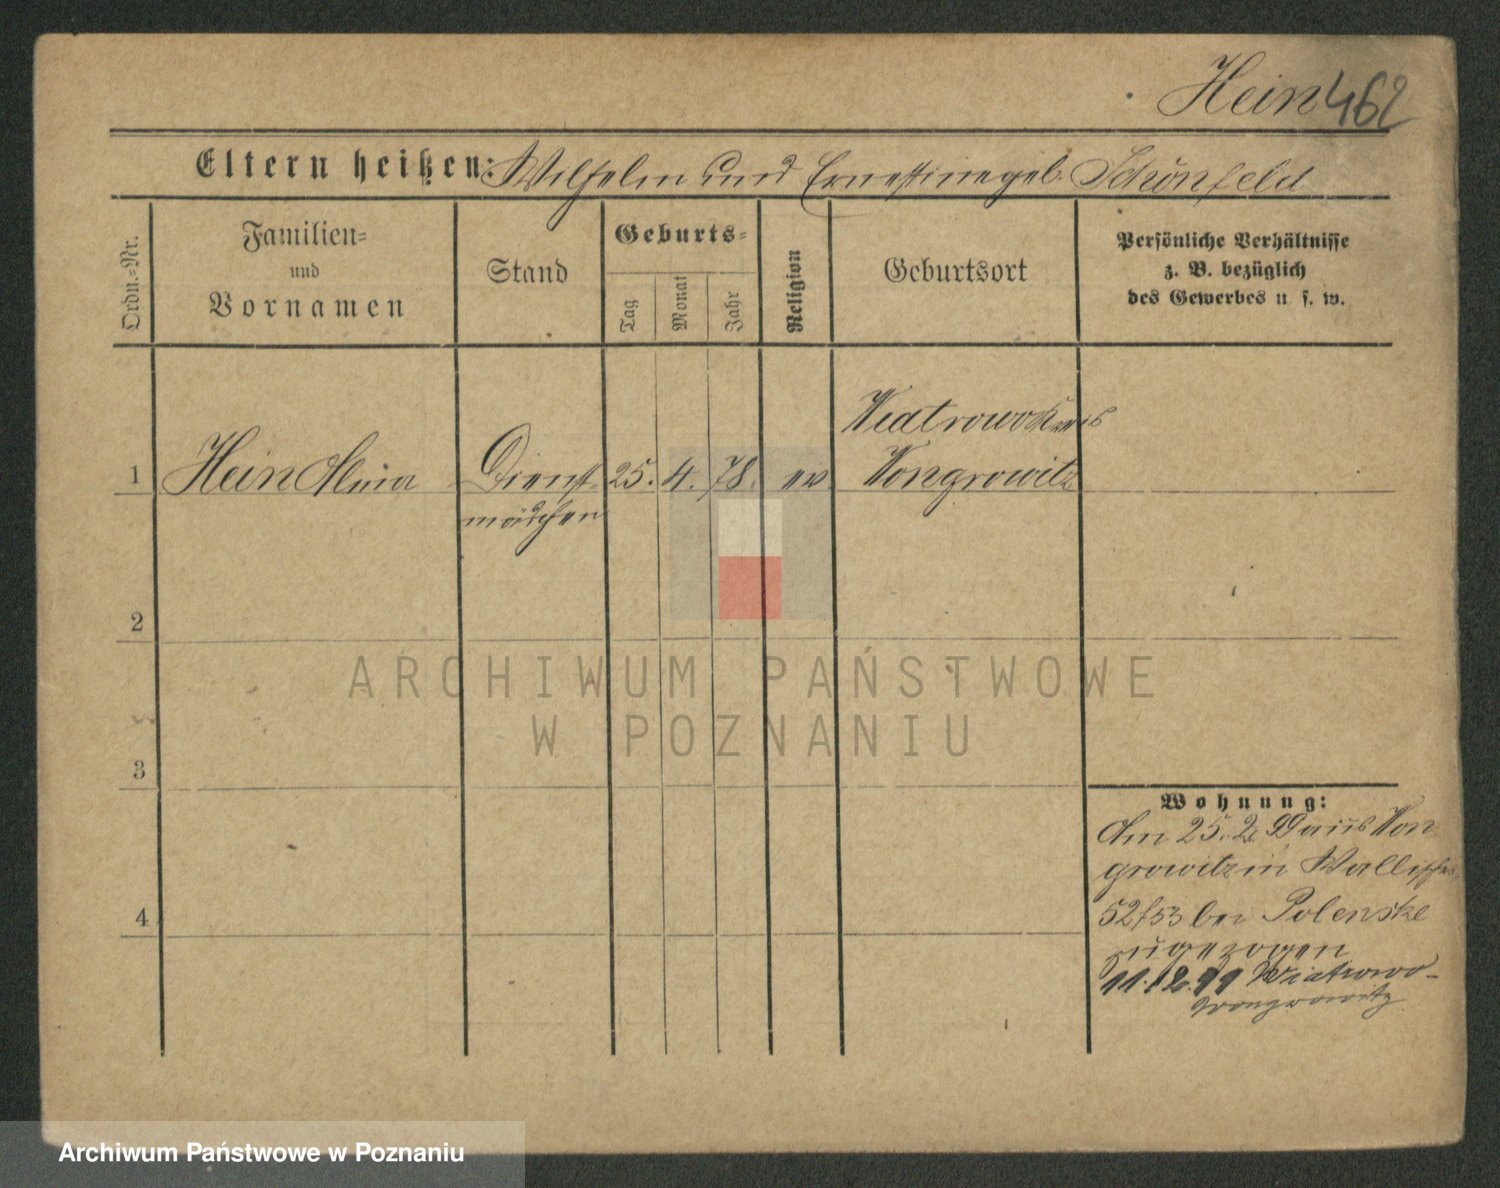 Hein 462
Eltern heißen: Wilhelm und Ernestine geb. Schönfeld
Ordn.-Nr.
Familien-
und
Vornamen
Stand
Geburts-
Tag
Monat
Jahr
Religion
Geburtsort
Persönliche Verhältnisse
z. B. bezüglich
des Gewerbes u. s. w.
Wiatrowo Kreis
1 Hein Alma Dienst- 25. 4. 78. ev. Wongrowitz
mädchen
2
3
4
Wohnung:
Am 25. 2. 99 aus Won
growitz in Wallischei
52/53 bei Polenske
zugezogen
11.12.99 Wiatrowo-
Wongrowitz
ARCHIWUM PAŃSTWOWE
W POZNANIU
Archiwum Państwowe w Poznaniu